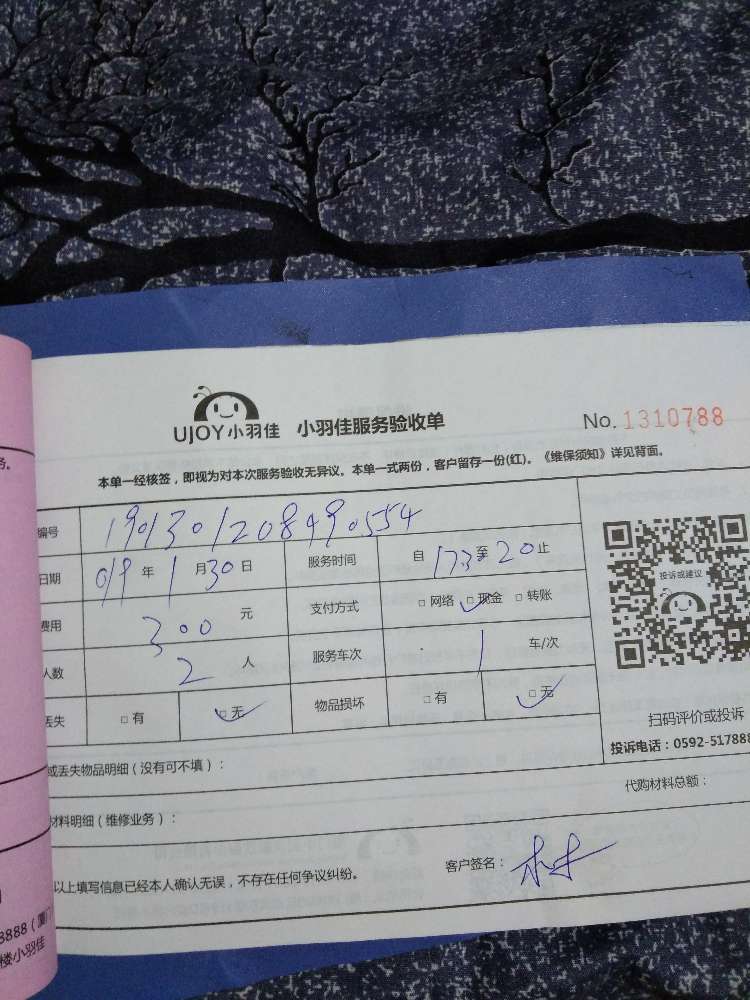 UJOY小羽佳 小羽佳服务验收单 No. 1310788
本单一经核签，即视为对本次服务验收无异议。本单一式两份，客户留存一份(红)。《维保须知》详见背面。
务。
编号 1901301208490554
日期 019 年 1 月 30 日 服务时间 自 173 至 20 止
费用 300 元 支付方式 □ 网络 □ 现金 □ 转账
人数 2 人 服务车次 1 车/次
丢失 □ 有 □ 无 物品损坏 □ 有 □ 无
投诉或建议
扫码评价或投诉
投诉电话：0592-517888
或丢失物品明细（没有可不填）：
代购材料总额：
材料明细（维修业务）：
以上填写信息已经本人确认无误，不存在任何争议纠纷。 客户签名：
8888（厦门
楼小羽佳